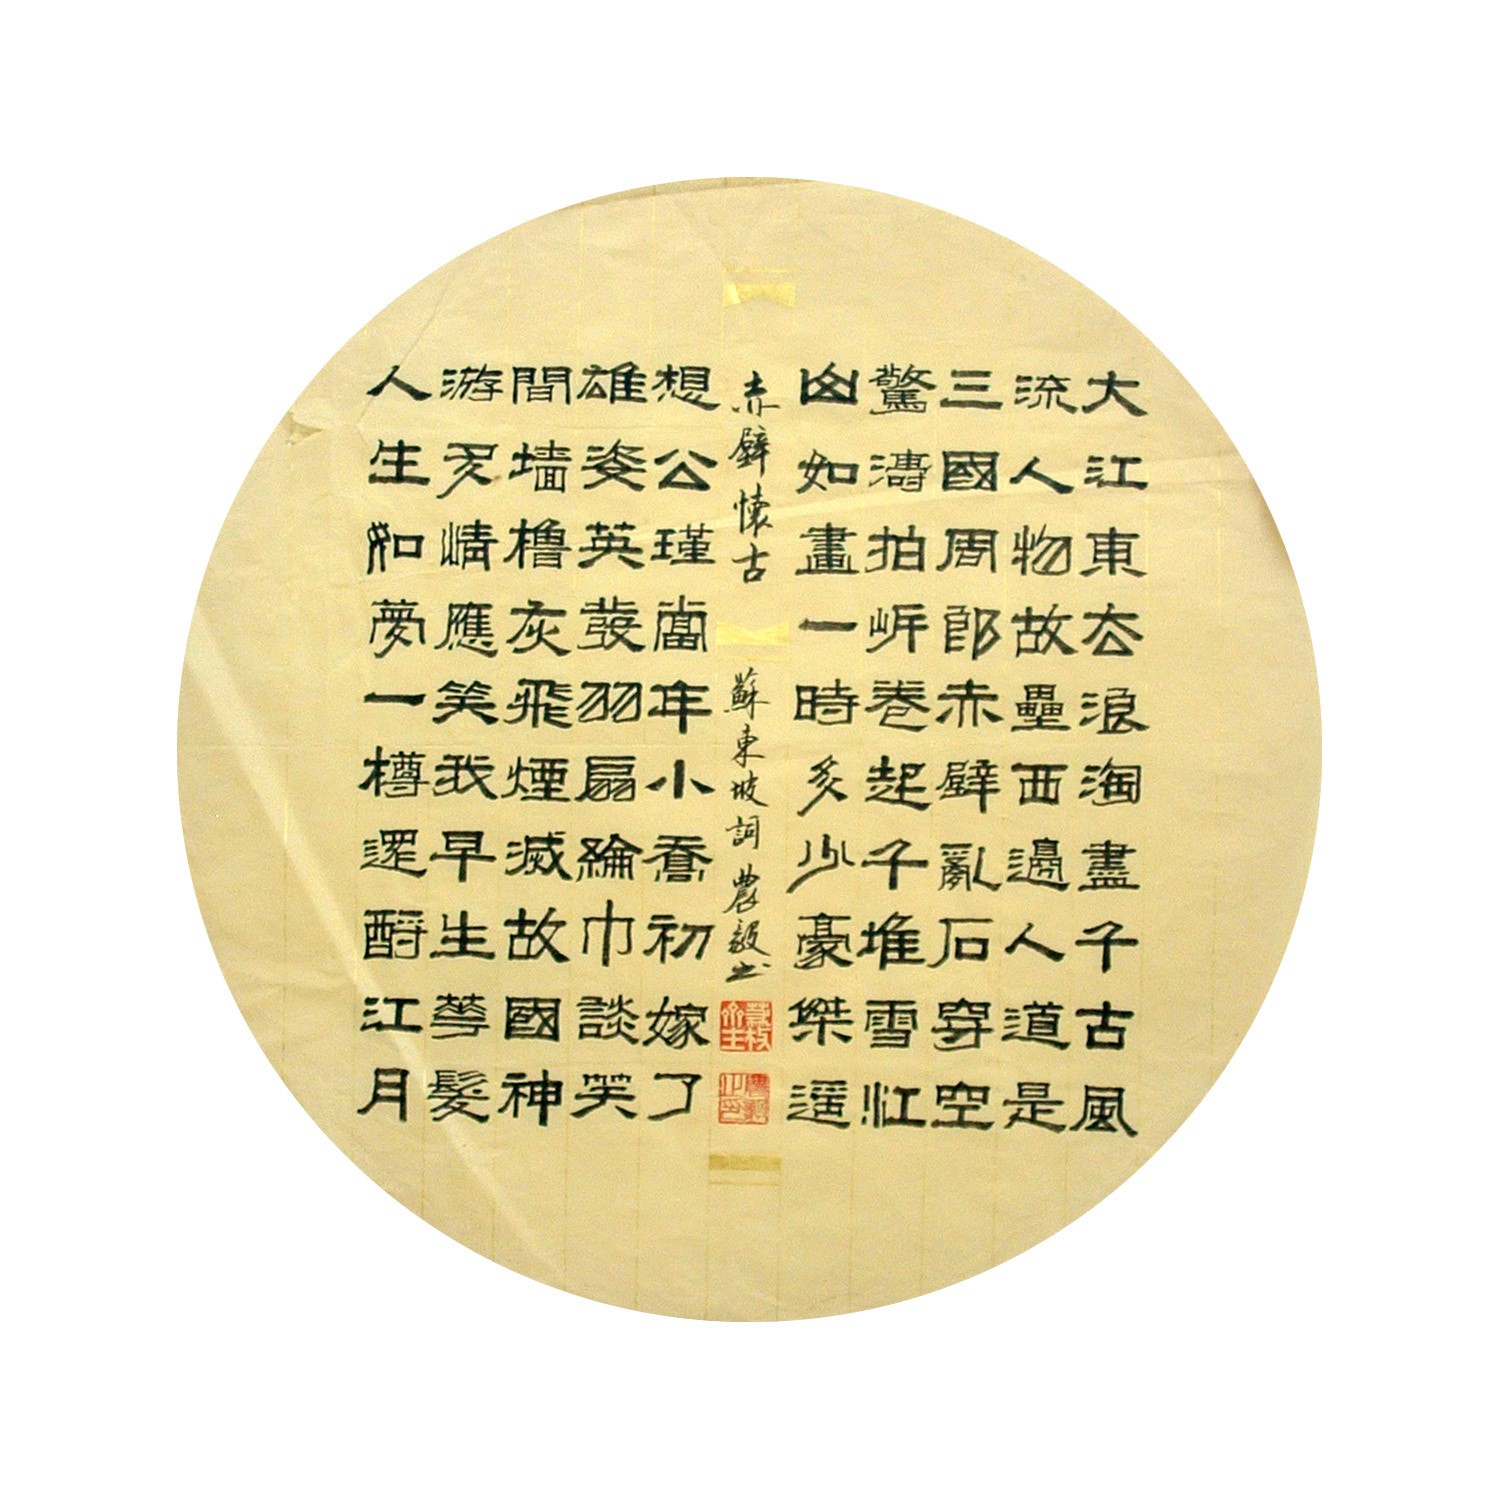 大江東去浪淘盡千古風
流人物故壘西邊人道是
三國周郎赤壁亂石穿空
驚濤拍岸卷起千堆雪江
山如畫一時多少豪傑遥
赤壁懷古 蘇東坡詞 農毅书
想公瑾當年小喬初嫁了
雄姿英發羽扇綸巾談笑
間墙櫓灰飛煙滅故國神
游多情應笑我早生華髮
人生如夢一樽還酹江月